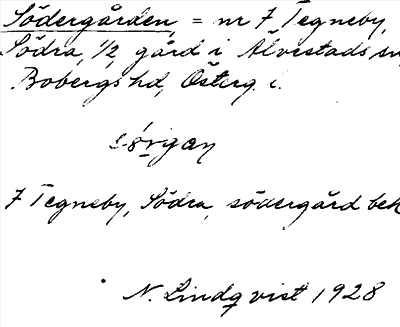 Södergården, = nr 7 Tegneby,
Södra, 1/2 gård i Älvestads sn,
Bobergs hd, Österg. l.
7 Tegneby, Södra, södergård bek
N. Lindqvist 1928